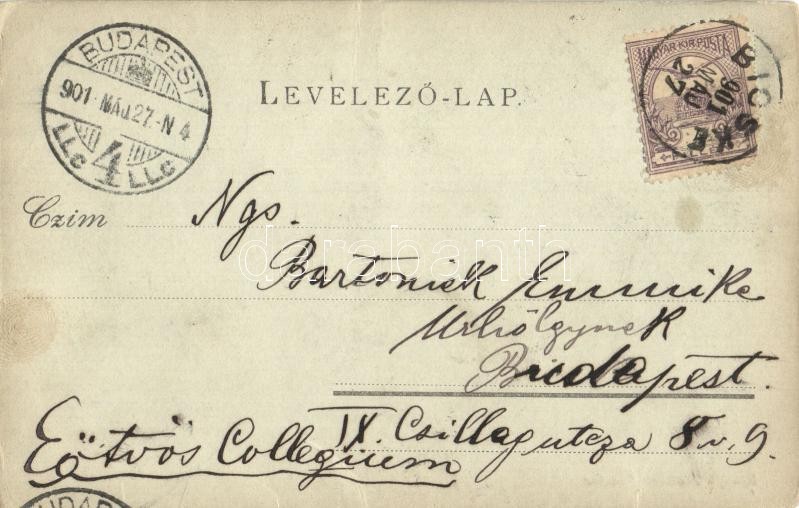 BUDAPEST
901 MÁJ 27-N 4
4
LLC LLC
LEVELEZŐ-LAP.
MAGYAR KIR. POSTA
BICSKE
901
MÁJ
27
Czim
Ngs.
Bartoniek Emmike
Urhölgynek
Budapest.
IX. Csillag utcza 8 v. 9.
Eötvös Collegium
darabanth
BUDAP